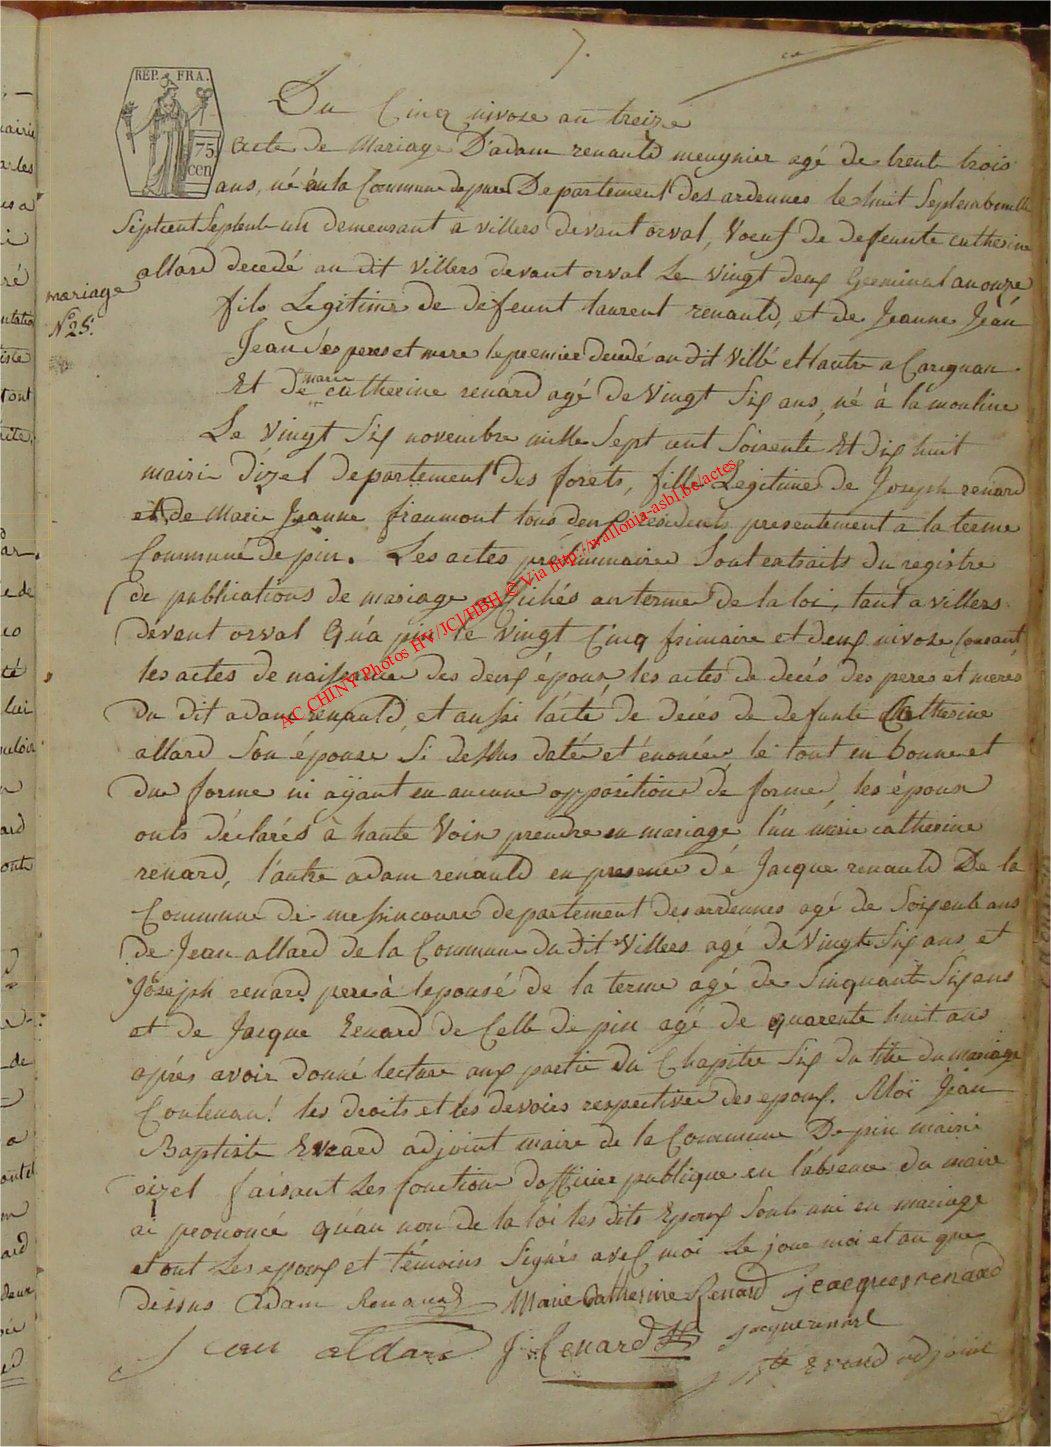 7.
REP. FRA.
75
cen
Du Cinq nivose an treize
acte de Mariage D'adam renauld meugnier agé de trent trois
ans, né à la Commune de pure Departement des ardennes le huit Septembre mille
Septcent Septente un demeurant a villers devant orval, Voeuf de defeunte catherine
allard decedé au dit Villers devant orval Le Vingt deux Germinal an onze
mariage
N° 25.
fils Legitime de défeunt laurent renauld, et de Jeanne Jean
Jean Ses peres et mere le premier decedé au dit Villé et l'autre a Carignan
Et de marie catherine renard agé de Vingt Six ans, né à la mouline
Le Vingt Six novembre mille Sept cent Soixente Et dix huit
mairie d'izel departement des forets, fille Legitime de Joseph renard
et de Marie Jeanne fraumont tous deux residents presentement a la terme
Commune de pin. Les actes préliminaire Sont extraits du registre
de publications de mariage affichés au terme de la loi, tant a villers
devant orval qu'a pin le Vingt Cinq frimaire et deux nivose Courant
les actes de naissance des deux époux les actes de decés des peres et meres
du dit adam renauld et aussi l'acte de decés de defunte Catherine
allard Son épouse Si dessus daté et énoncée, le tout en bonne et
due forme ni aÿant eu aucune opposition de forme, les époux
onts déclarés à haute Voix prendre en mariage l'un marie catherine
renard, l'autre adam renauld en presence dé Jacque renauld De la
Commune de messincoure departement des ardennes agé de Soixente ans
de Jean allard de la Commune du dit Villers agé de Vingt Six ans et
Joseph renard pere à l'epousé de la terme agé de Sinquante Six ans
et de Jacque Renard de Celle de pin agé de quarente huit ans
aprés avoir donné lecture aux partie du Chapitre Six du titre du mariage
Contenant les droits et les devoirs respective des epoux. Moi Jean
Baptiste Evrard adjoint maire de la Commune De pin mairie
d'izel faisant Les fonction d'officier publique en l'absence du maire
ai prononcé qu'au non de la loi les dits Epoux Sont uni en mariage
et ont Les epoux et témoins Signés avec moi Le jour moi et an que
dessus Adam Renauld Marie Catherine Renard jeacques renaud
Jean aldare J: Renard jacque renard
Evrard adjoint
AC CHINY Photos HV/JCJ/HBH © Via http://wallonia-asbl.be/actes